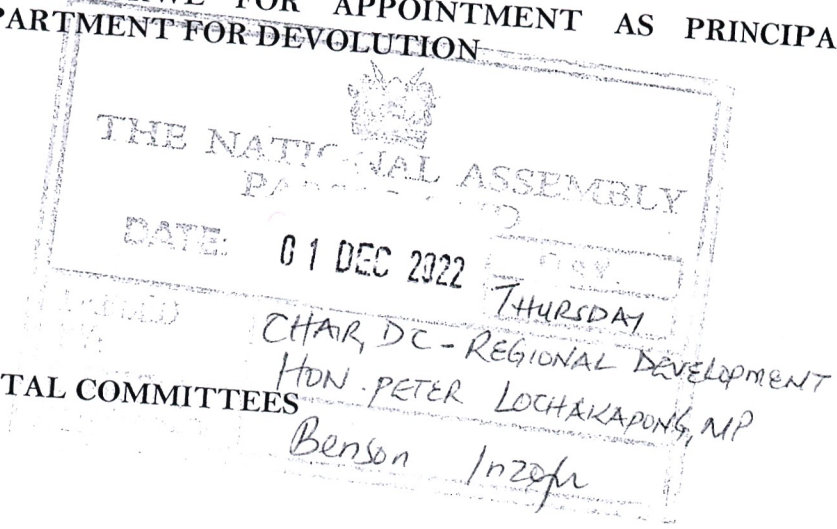 FOR APPOINTMENT AS PRINCIPA
PARTMENT FOR DEVOLUTION
THE NATIONAL ASSEMBLY
DATE: 01 DEC 2022
DAY.
THURSDAY
CHAIR, DC - REGIONAL DEVELOPMENT
HON. PETER LOCHAKAPONG, MP
TAL COMMITTEES
Benson